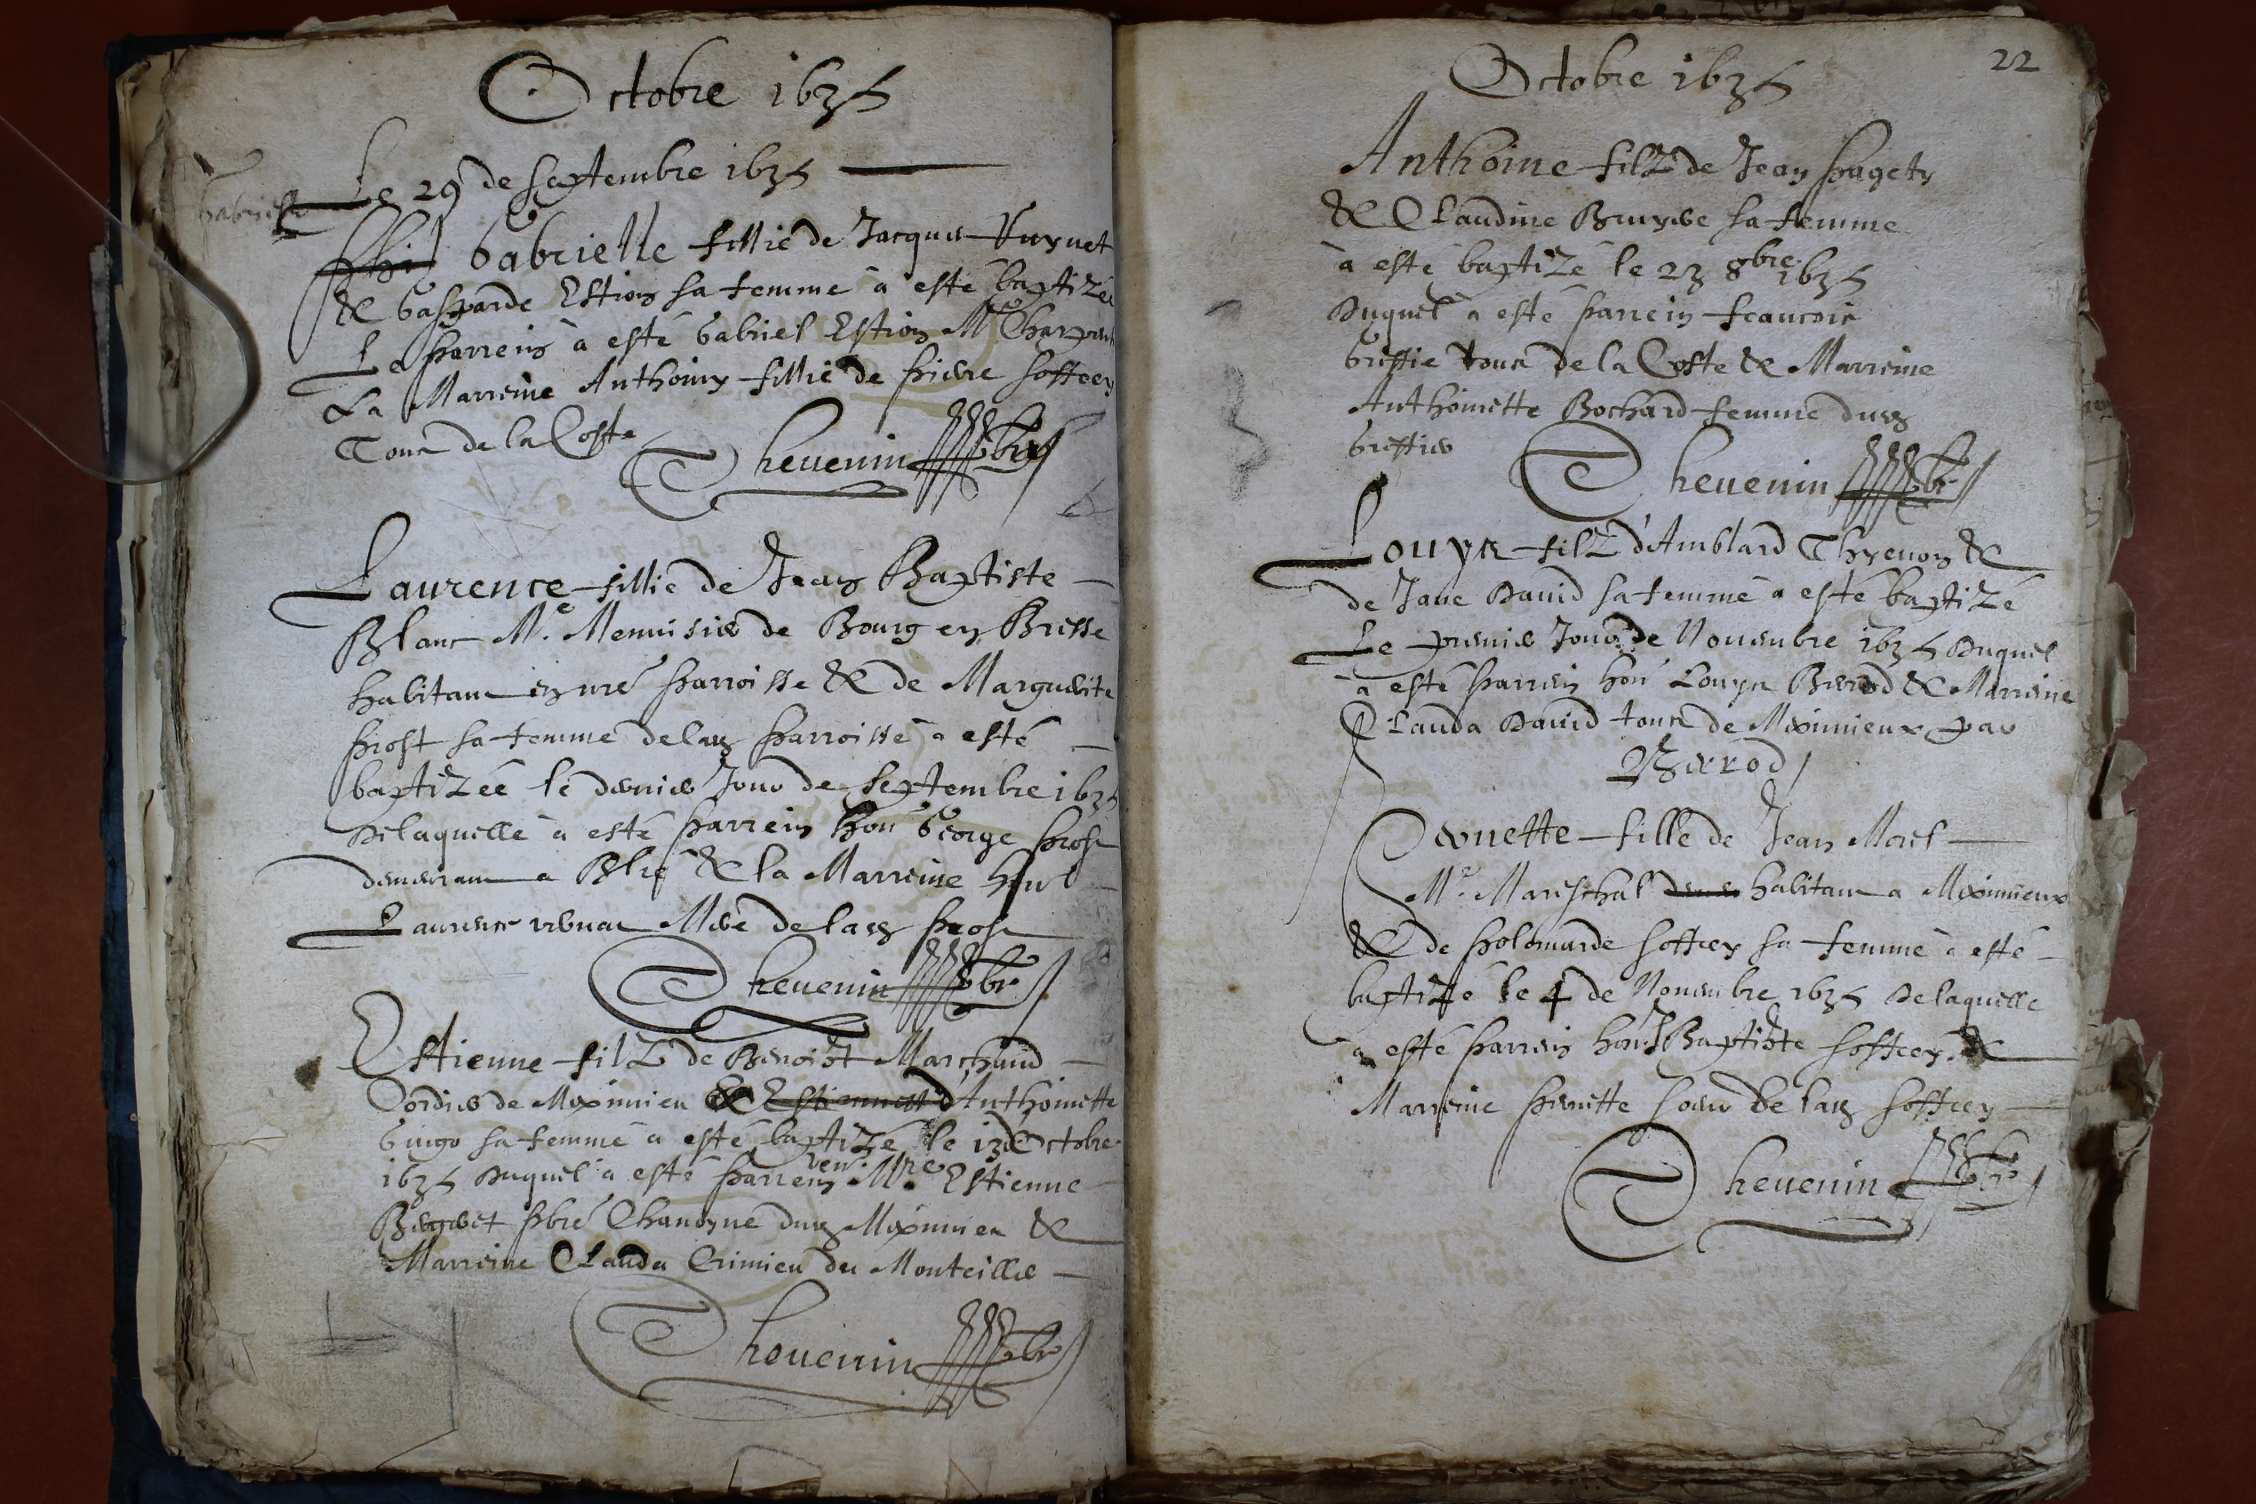 Octobre 1635
Le 29 de Septembre 1635
Gabrielle
Gabrielle fillie de Jacques
& Gasparde Estion sa femme à esté baptizée
Le Parrein à esté Gabriel Estion Me
La Marreine Anthoiny fillie de Pierre Soffrey
Tous de la Coste
Thevenin pbre
Laurence fillie de Jean Baptiste
Blanc Me Menuisier de Bourg en Bresse
habitant en nre Parroisse & de Marguerite
Prost sa femme de lad Parroisse à esté
baptizée le dernier Jour de Septembre 1635
De laquelle à esté Parrein hon George Prost
demeurant a & la Marreine
Laurence Mere de lad Prost
Thevenin pbr
Estienne filz de Benoist Marchand
Cordier de Meximieu & Anthoinette
Gingo sa femme à esté baptizé le 13 Octobre
1635 Duquel à esté Parrein ven. Mre Estienne
pbre Chanoyne dud Meximieu &
Marreine Clauda Crimieu du Monteillier
Thevenin pbr
22
Octobre 1635
Anthoine filz de Jean Pagety
& Claudine Bruyere sa femme
à esté baptizé le 23 8bre 1635
Duquel à esté Parrein Francois
Greffie tous de la Coste & Marreine
Anthoinette Bochard femme dud
Greffier
Thevenin pbr
Louys filz d'Amblard Thevenon &
de Jane David sa femme à esté baptizé
Le premier Jour de Novembre 1635 Duquel
à esté Parrein hon Louys Berrod & Marreine
Clauda David tous de Meximieux par
Berrod
fille de Jean Morel
Me Mareschal habitant a Meximieux
& de Polomarde Soffrey sa femme à esté
baptizé le 4 de Novembre 1635 De laquelle
à esté Parrein hon J Baptiste Soffrey &
Marreine Pernette soeur de lad Soffrey
Thevenin pbr